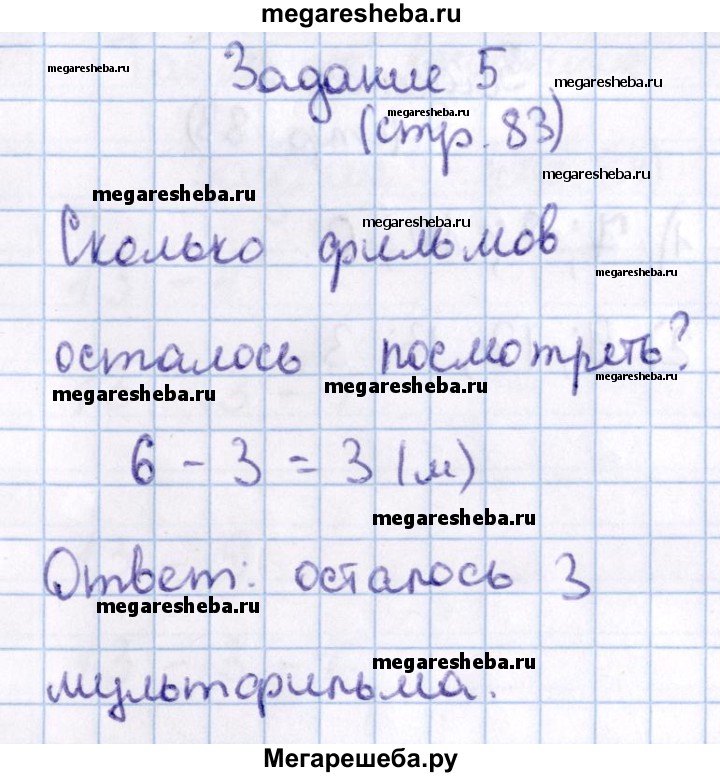 megaresheba.ru
Задание 5
megaresheba.ru
megaresheba.ru
megaresheba.ru
(стр. 83)
megaresheba.ru
megaresheba.ru
megaresheba.ru
Сколько фильмов
megaresheba.ru
осталось посмотреть?
megaresheba.ru
megaresheba.ru
megaresheba.ru
6 - 3 = 3 (м)
megaresheba.ru
Ответ: осталось 3
megaresheba.ru
megaresheba.ru
мультфильма.
Мегарешеба.ру